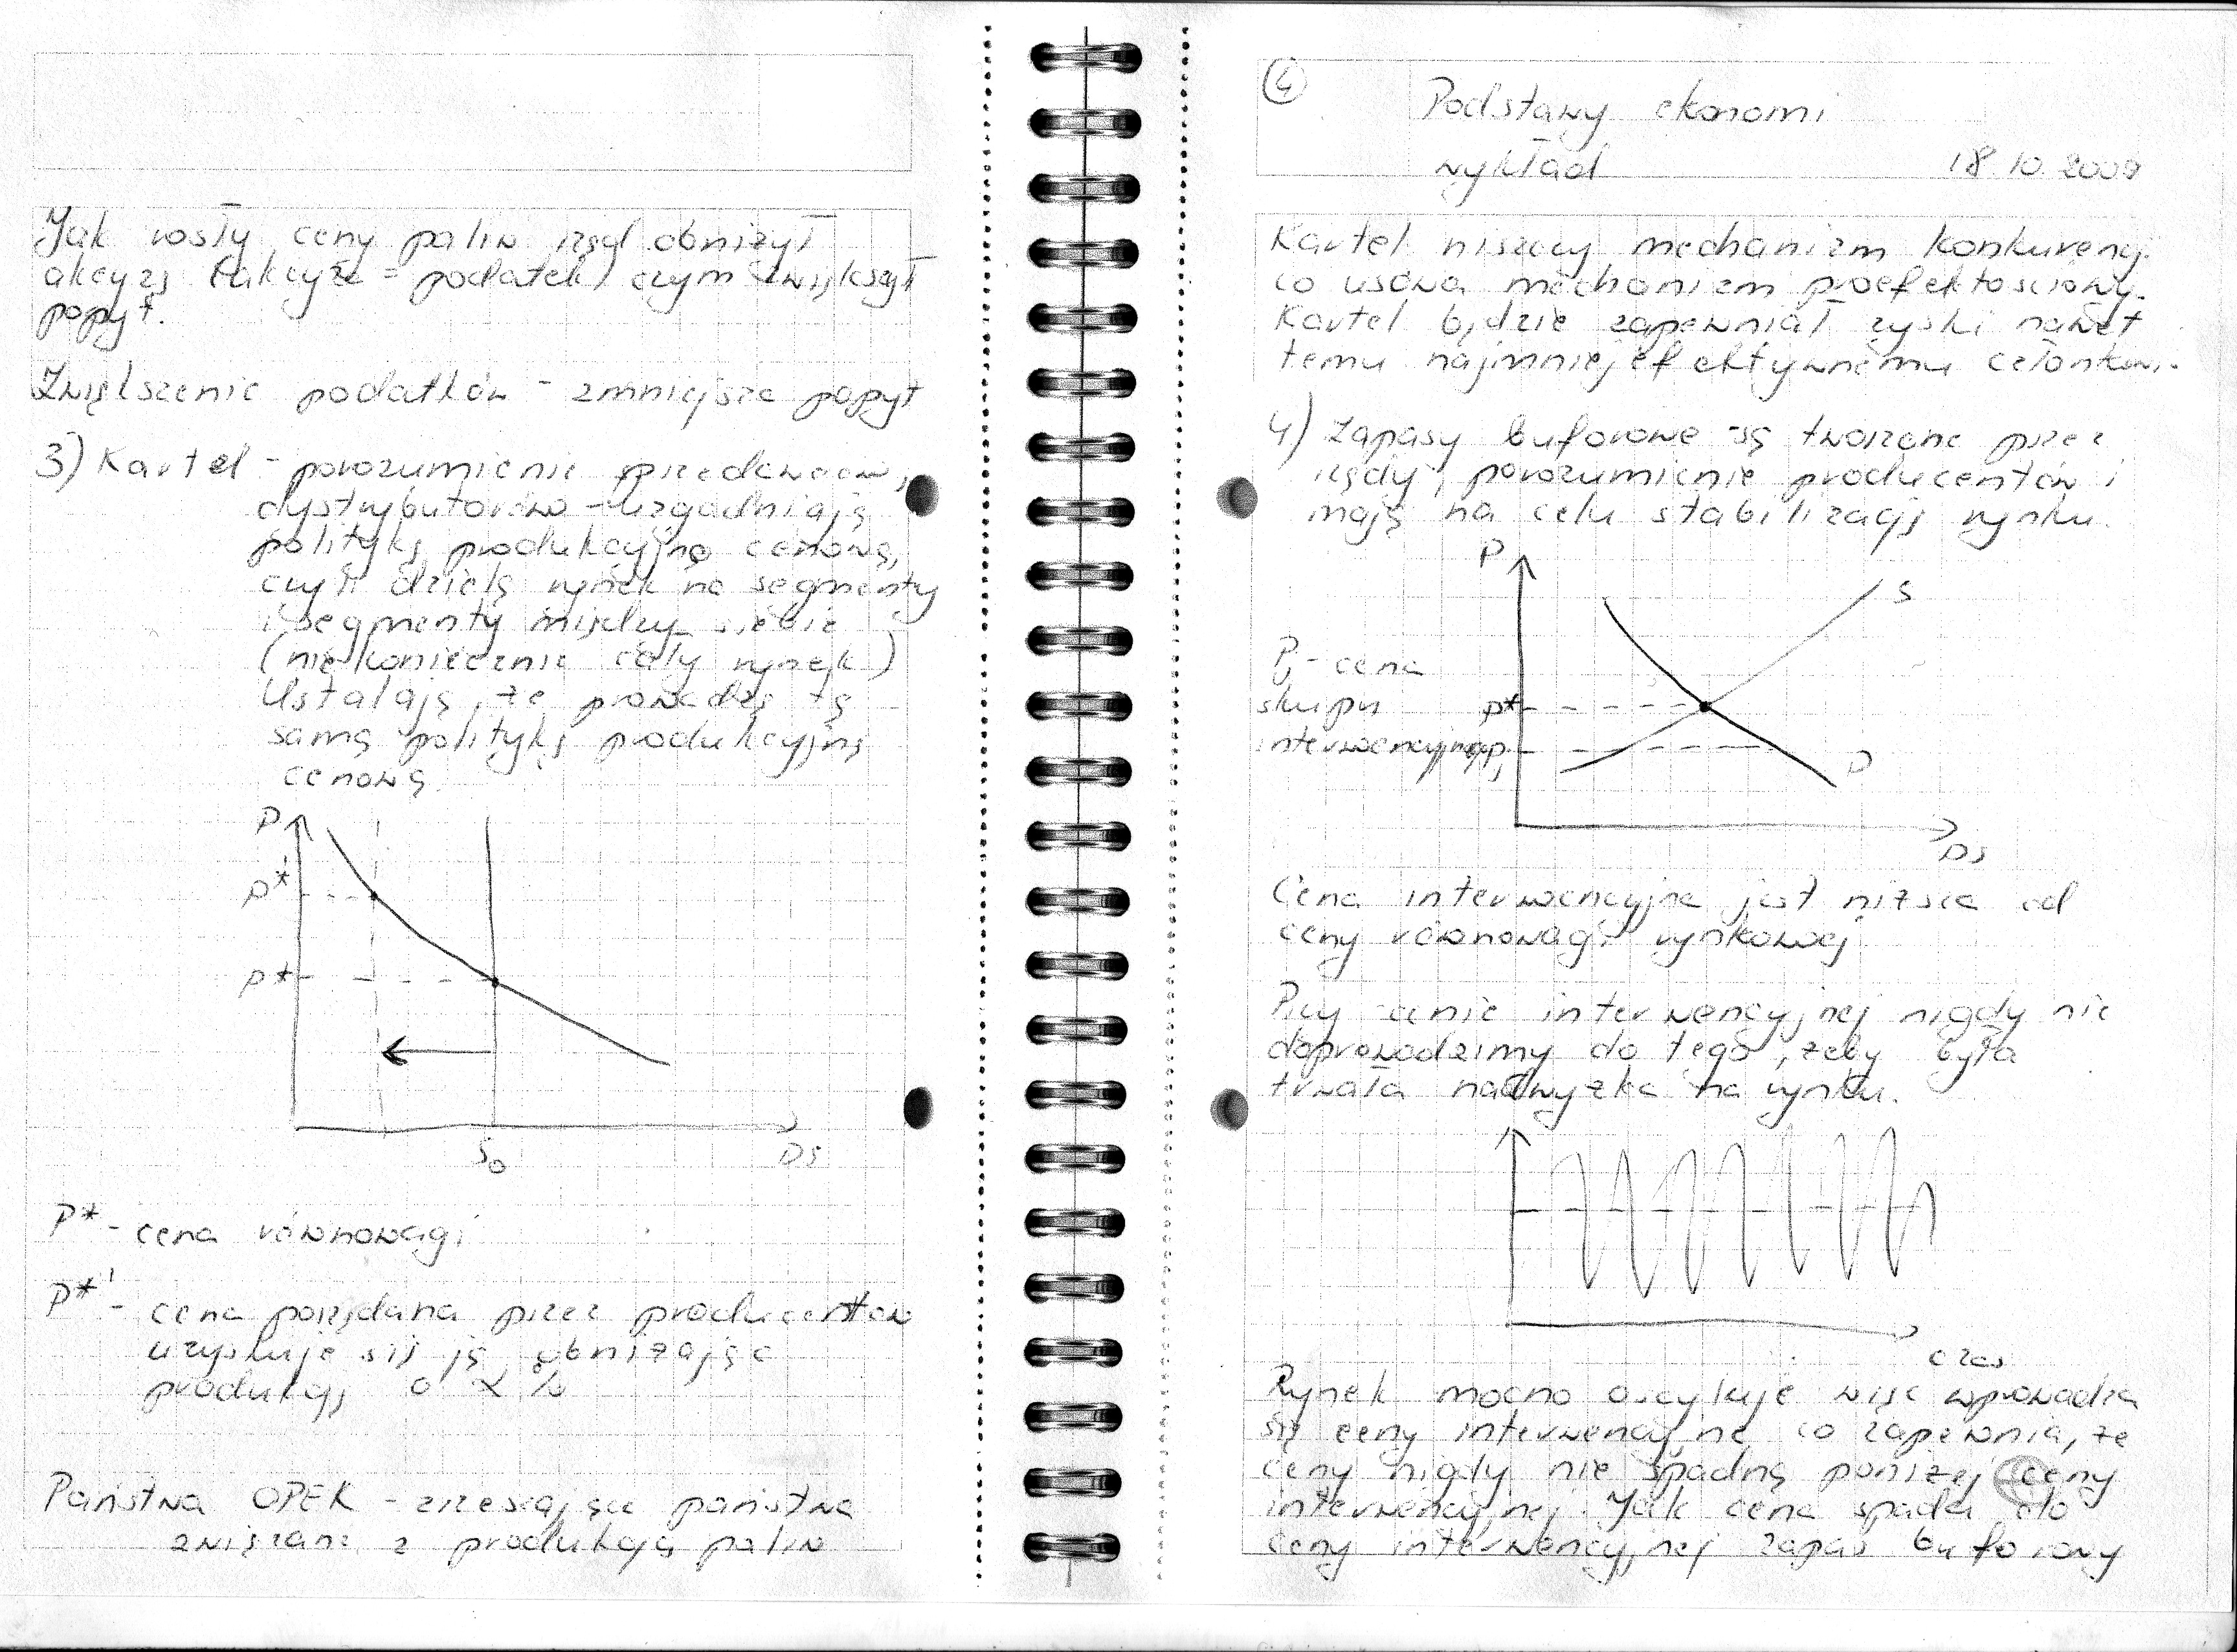 Jak rosły ceny paliw rząd obniżył
akcyzę (akcyza = podatek) czym zwiększył
popyt.
Zwiększenie podatków - zmniejsza popyt
3) Kartel - porozumienie sprzedawców,
dystrybutorów - uzgadniają
politykę produkcyjną cenową,
czyli dzielą rynek na segmenty
i segmenty między siebie
(nie koniecznie cały rynek)
Ustalają, że prowadzą tą
samą politykę produkcyjną
cenową
P
P*'
P*
S₀
DS
P* - cena równowagi
P*' - cena pożądana przez producentów
uzyskuje się ją obniżając
produkcję o x %
Państwa OPEK - zrzeszające państwa
związane z produkcją paliw
4
Podstawy ekonomi
wykład
18.10.2009
Kartel niszczy mechanizm konkurencj.
co usówa mechanizm proefektościowy.
Kartel będzie zapewniał zyski nawet
temu najmniej efektywnemu członkowi.
4) Zapasy buforowe - są tworzone przez
rządy, porozumienie producentów i
mają na celu stabilizację rynku.
P
S
Pᵢ - cena
skupu
interwencyjnego
P*
Pᵢ
D
DS
Cena interwencyjna jest niższa od
ceny równowagi rynkowej
Przy cenie interwencyjnej nigdy nie
doprowadzimy do tego, żeby była
trwała nadwyżka na rynku.
czas
Rynek mocno oscyluje więc wprowadza
się ceny interwencyjne co zapewnia, że
ceny nigdy nie spadną poniżej ceny
interwencyjnej. Jak cena spada do
ceny interwencyjnej zapas buforowy